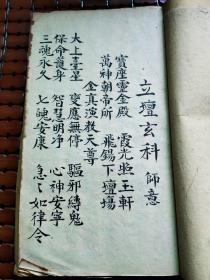 立壇玄科 師意
寳座靈金殿 霞光照玉軒
萬神朝帝所 飛錫下壇場
金真演教天尊
太上臺星 變應無停 驅邪縛鬼
保命護身 智慧明净 心神安寧
三魂永久 七魄安康 急〻如律令